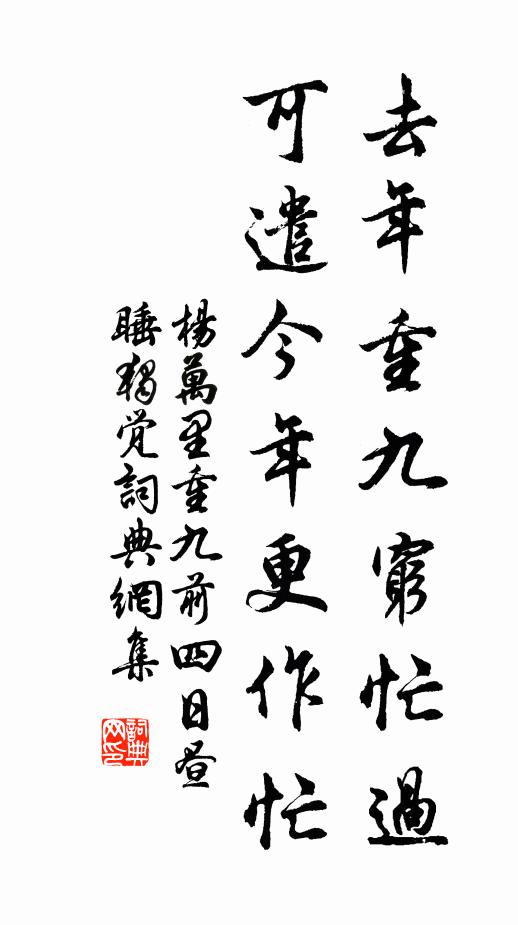 去年重九窮忙過
可遣今年更作忙
楊萬里重九前四日昼
睡獨覺詞典網集
詞典网印